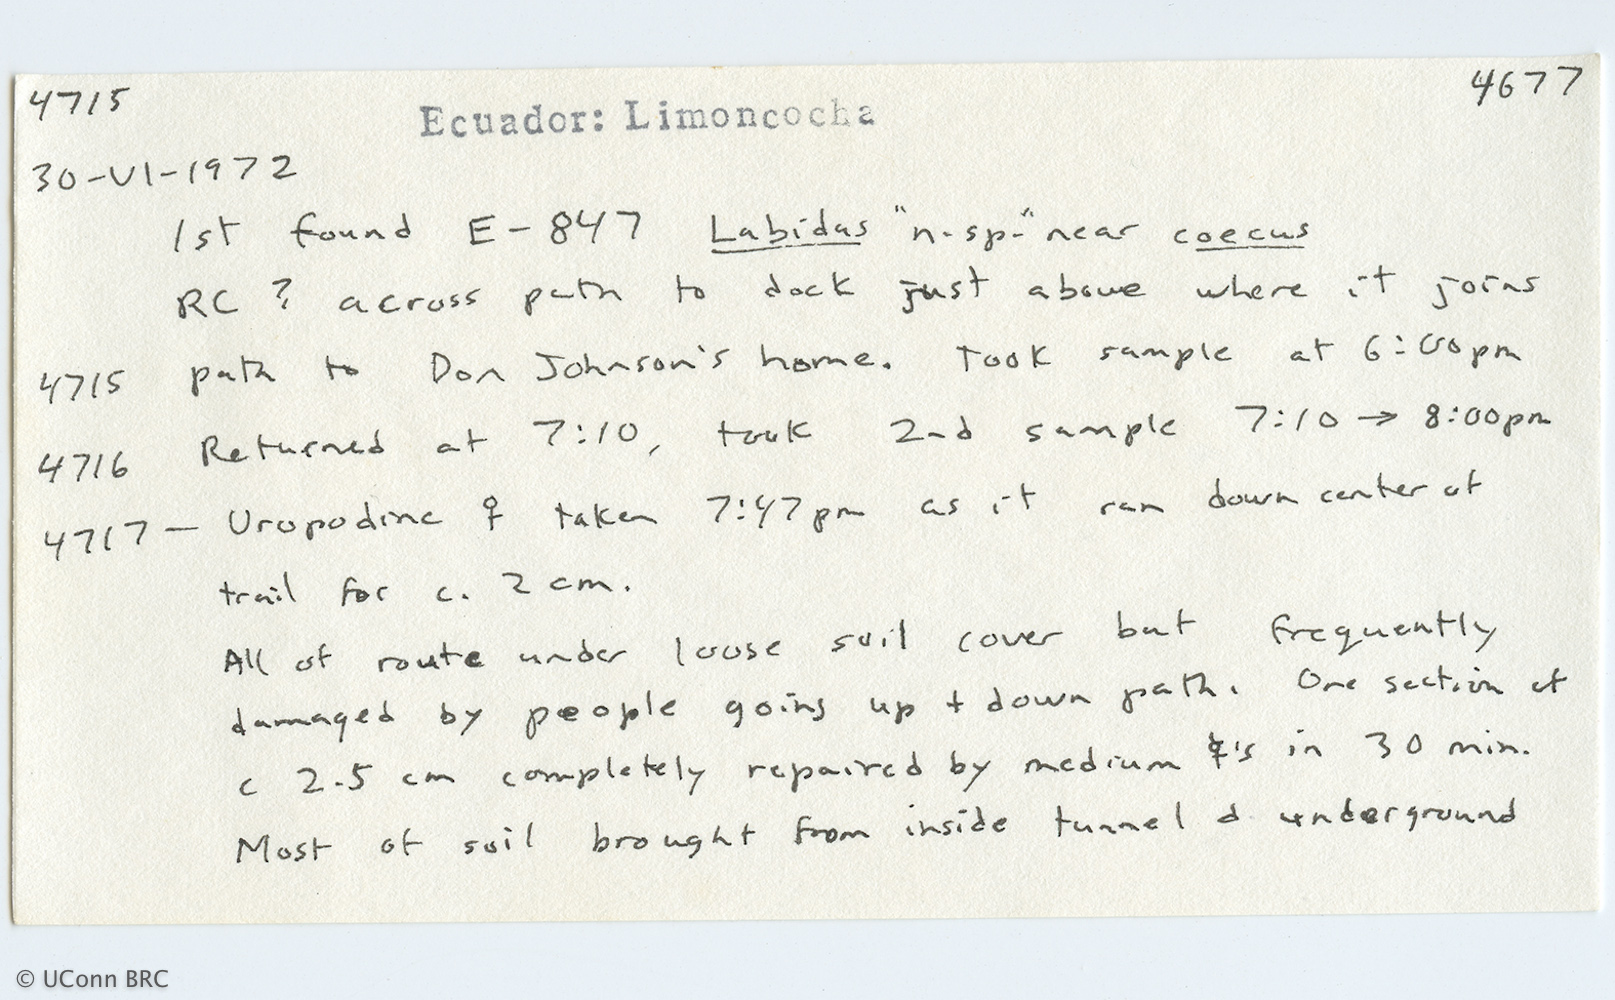 4715
Ecuador: Limoncocha
4677
30-VI-1972
1st found E-847 Labidus "n.sp." near coecus
RC ? across path to dock just above where it joins
4715 path to Don Johnson's home. Took sample at 6:00pm
4716 Returned at 7:10, took 2nd sample 7:10 → 8:00pm
4717 — Uropodine ♀ taken 7:47pm as it ran down center of
trail for c. 2 cm.
All of route under loose soil cover but frequently
damaged by people going up + down path. One section of
c 2.5 cm completely repaired by medium ☿'s in 30 min.
Most of soil brought from inside tunnel & underground
© UConn BRC